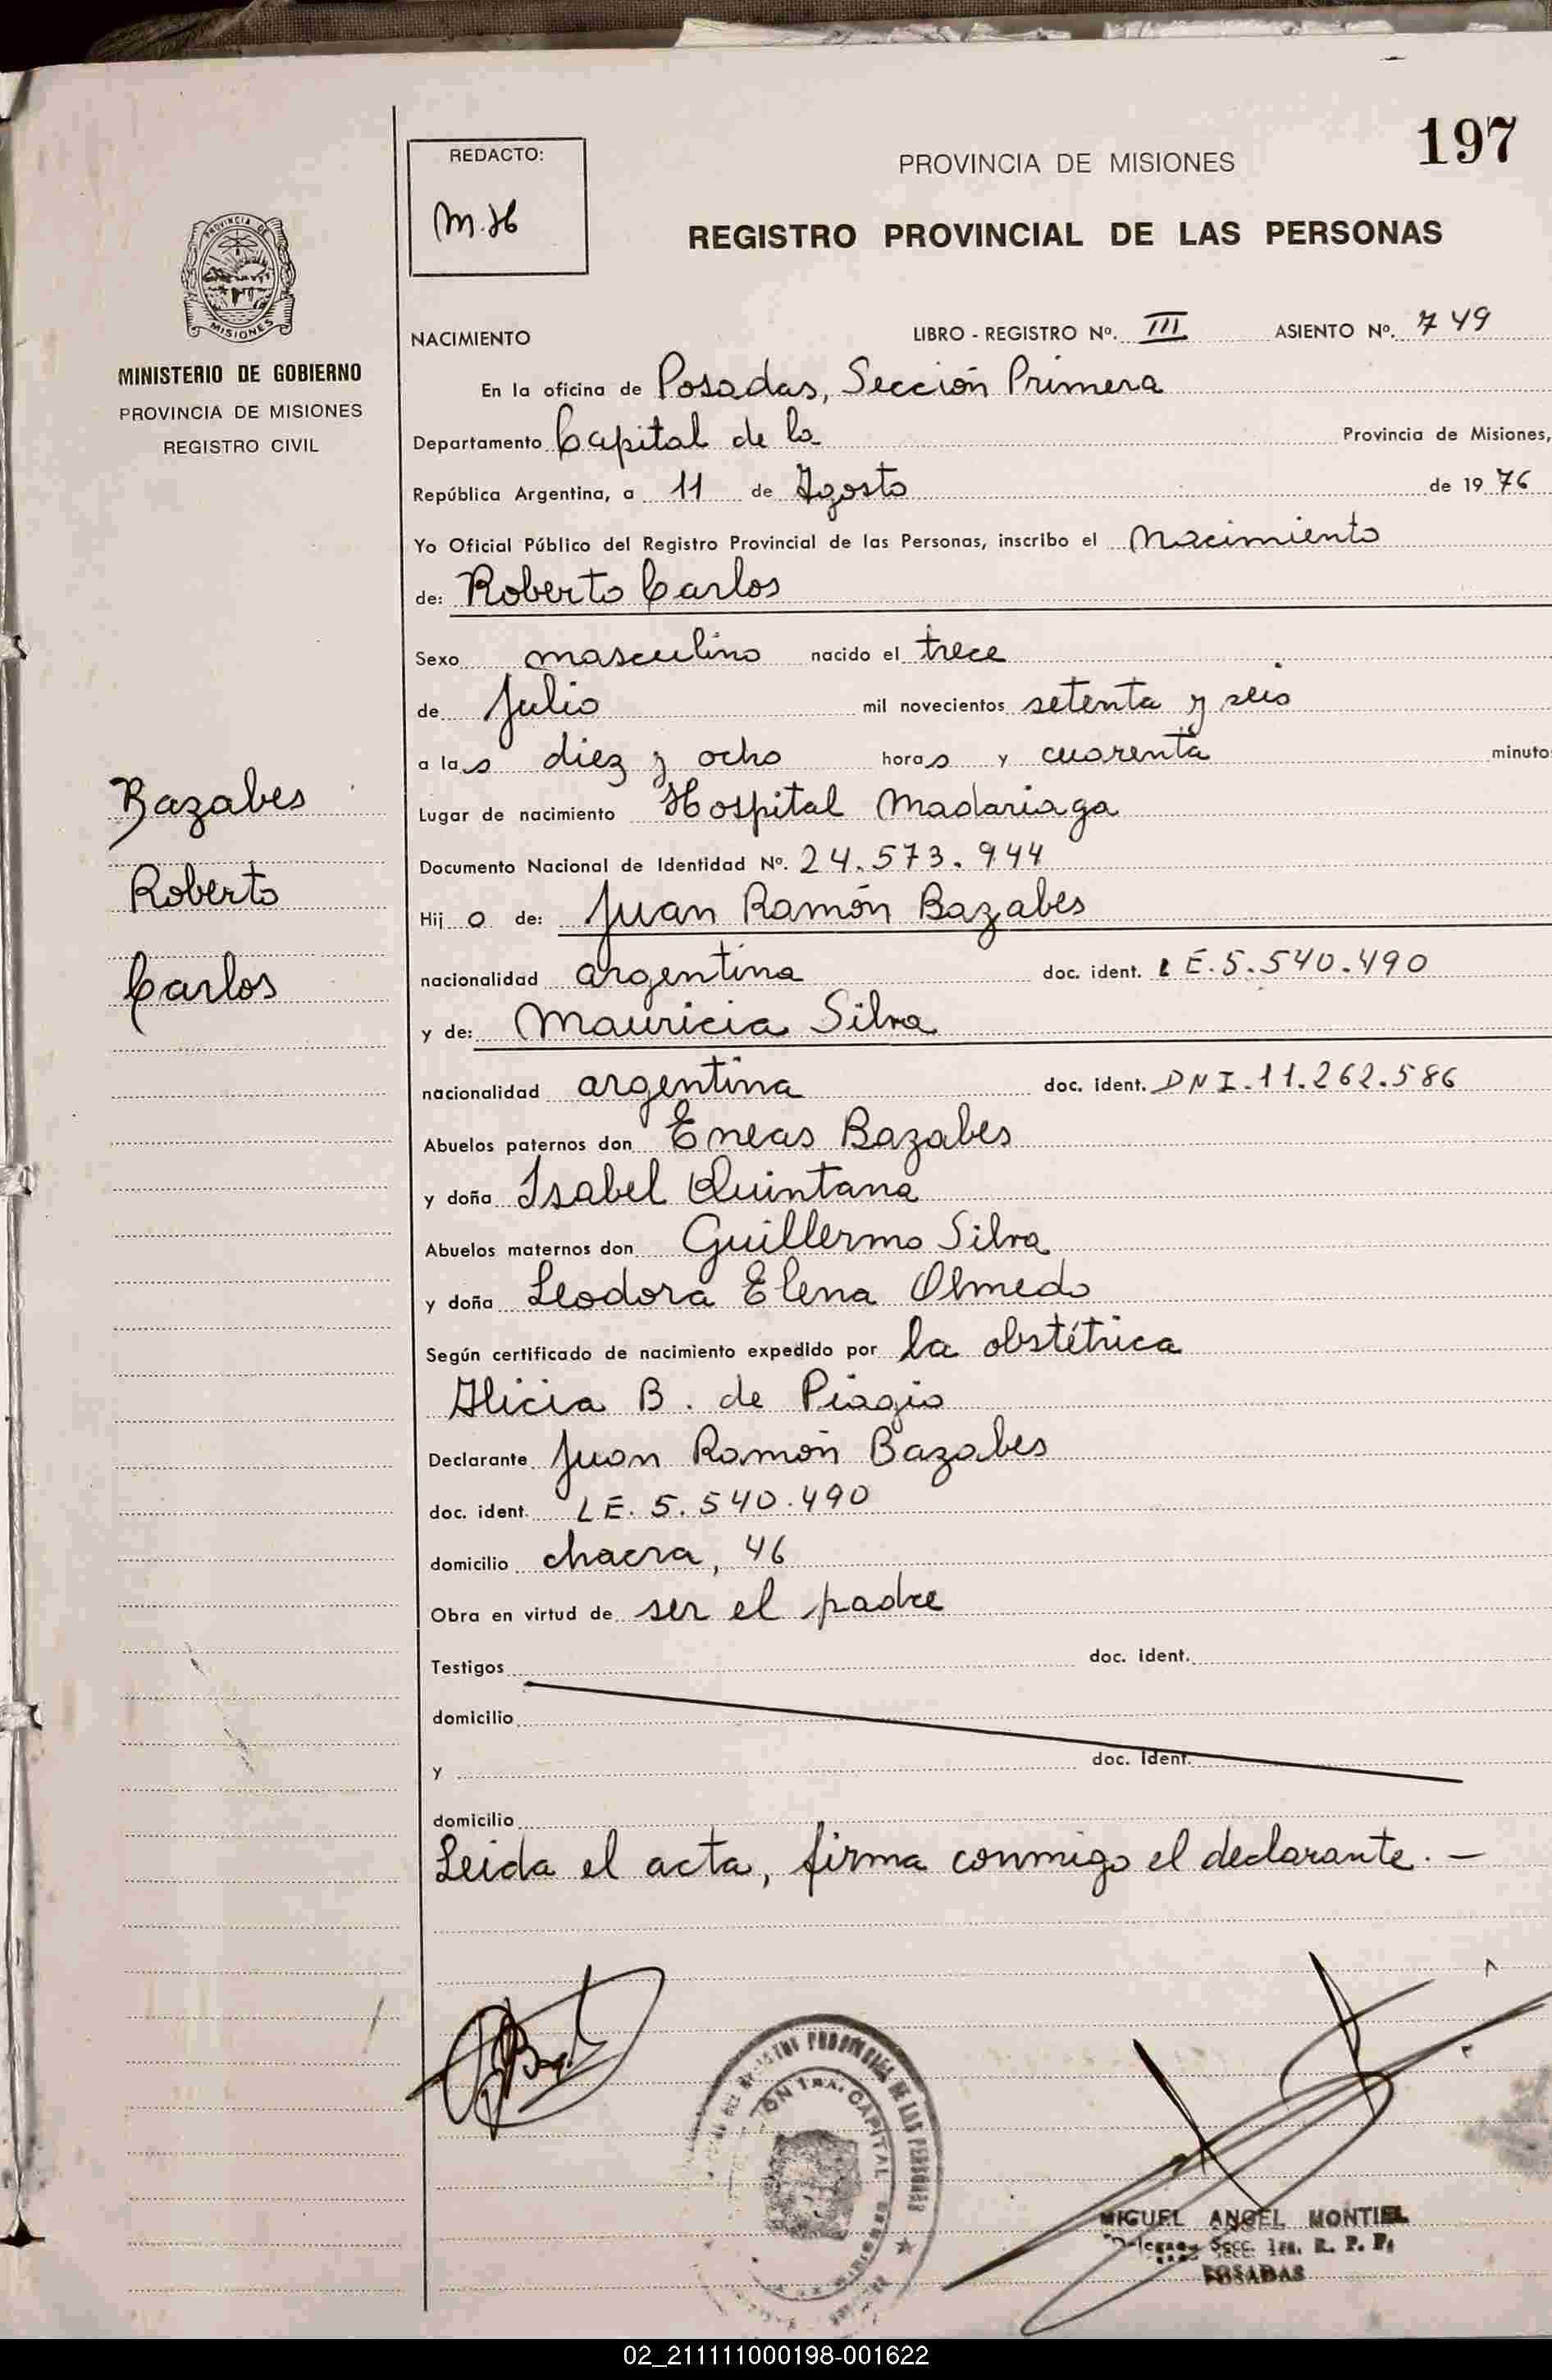 197
REDACTO:
M.H
PROVINCIA DE MISIONES
REGISTRO PROVINCIAL DE LAS PERSONAS
PROVINCIA DE
MISIONES
MINISTERIO DE GOBIERNO
PROVINCIA DE MISIONES
REGISTRO CIVIL
NACIMIENTO LIBRO - REGISTRO Nº. III ASIENTO Nº. 749
En la oficina de Posadas, Sección Primera
Departamento Capital de la Provincia de Misiones,
República Argentina, a 11 de Agosto de 1976
Yo Oficial Público del Registro Provincial de las Personas, inscribo el nacimiento
de: Roberto Carlos
Sexo masculino nacido el trece
de Julio mil novecientos setenta y seis
a las diez y ocho horas y cuarenta minuto
Lugar de nacimiento Hospital Madariaga
Documento Nacional de Identidad Nº. 24.573.944
Hijo de: Juan Ramón Bazabes
nacionalidad argentina doc. ident. LE.5.540.490
y de: Mauricia Silva
nacionalidad argentina doc. ident. DNI.11.262.586
Abuelos paternos don Eneas Bazabes
y doña Isabel Quintana
Abuelos maternos don Guillermo Silva
y doña Leodora Elena Olmedo
Según certificado de nacimiento expedido por la obstétrica
Alicia B. de Piagio
Declarante Juan Ramón Bazabes
doc. ident. LE. 5.540.490
domicilio chacra, 46
Obra en virtud de ser el padre
Testigos doc. ident.
domicilio
y doc. ident.
domicilio
Leida el acta, firma conmigo el declarante. —
Bazabes
Roberto
Carlos
PROVINCIAL DE LAS PERSONAS
CAPITAL
MIGUEL ANGEL MONTIEL
Secc. 1ra. R. P. P.
POSADAS
02_211111000198-001622